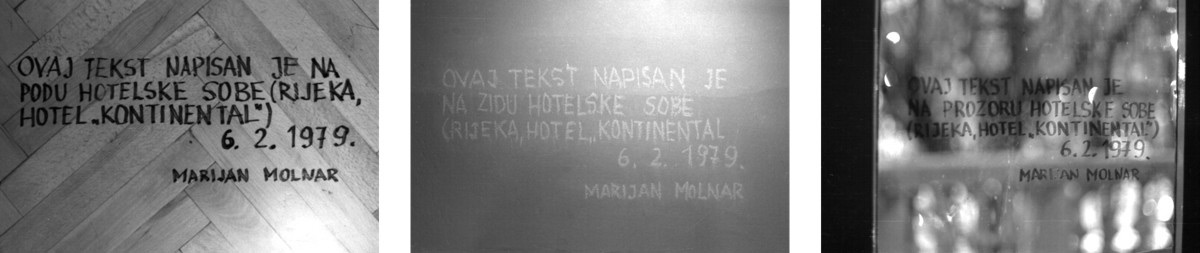 OVAJ TEKST NAPISAN JE NA
PODU HOTELSKE SOBE (RIJEKA,
HOTEL „KONTINENTAL")
6. 2. 1979.
MARIJAN MOLNAR
OVAJ TEKST NAPISAN JE
NA ZIDU HOTELSKE SOBE
(RIJEKA, HOTEL „KONTINENTAL
6. 2. 1979.
MARIJAN MOLNAR
OVAJ TEKST NAPISAN JE
NA PROZORU HOTELSKE SOBE
(RIJEKA, HOTEL „KONTINENTAL")
6. 2. 1979.
MARIJAN MOLNAR